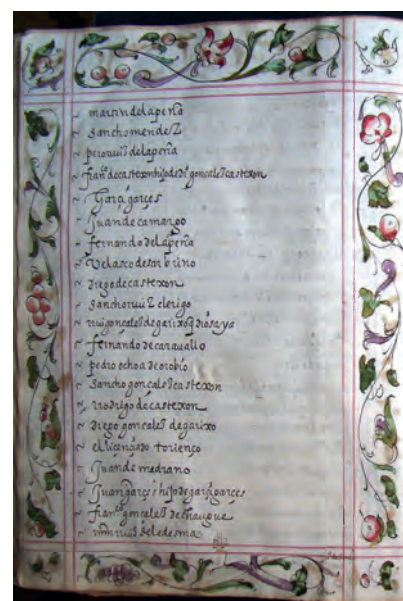 martin dela peña
Sancho mendeZ
pero ruiz dela peña
fran^co de castexon hijo de d^o gonçales castexon
Garçi garçes
Juan de camargo
fernando dela peña
Velasco de
diego de castexon
Sancho ruiZ clerigo
rui gonçales de garixo q dios aya
fernando de carauallo
pedro ochoa de orobio
Sancho gonçales castexon
rrodrigo de castexon
diego gonçales de garixo
el liçençiado torienço
Juan de medrano
Juan garçes hijo de garçi garçes
fran^co gonçales de
ruiz de ledesma